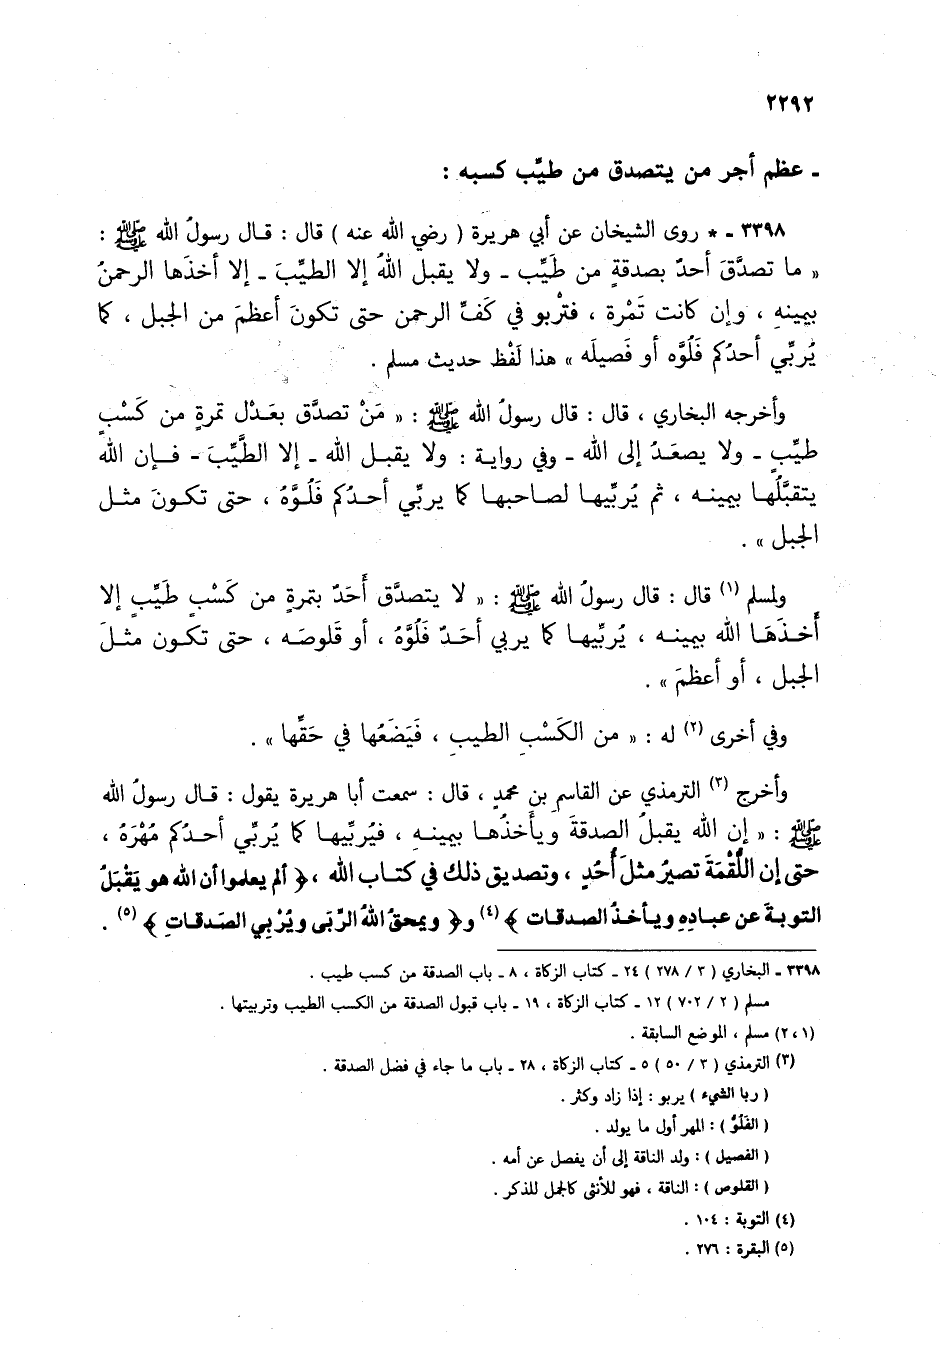 ٢٢٩٢
ـ عظم أجر من يتصدق من طيِّب كسبه :
٣٣٩٨ ـ * روى الشيخان عن أبي هريرة ( رضي الله عنه ) قال : قـال رسولُ الله ﷺ :
« ما تصدَّقَ أحدٌ بصدقةٍ من طَيِّب ـ ولا يقبل اللهُ إلا الطيِّبَ ـ إلا أخذَها الرحمنُ
بيمينهِ ، وإن كانت تَمْرة ، فتربو في كَفِّ الرحمن حتى تكونَ أعظمَ من الجبل ، كما
يُربِّي أحدُكم فَلُوَّه أو فَصيلَه » هذا لَفْظ حديث مسلم .
وأخرجه البخاري ، قال : قال رسولُ الله ﷺ : « مَنْ تصدَّق بعَـدْل تمرةٍ من كَسْبٍ
طيِّبٍ ـ ولا يصعَـدُ إلى الله ـ وفي روايـة : ولا يقبـل الله ـ إلا الطَّيِّبَ ـ فـإن الله
يتقبَّلُهـا بيمينـه ، ثم يُربِّيهـا لصـاحبهـا كما يربِّي أحـدُكم فَلُـوَّهُ ، حتى تكـونَ مثـل
الجبل » .
ولمسلم (١) قال : قال رسولُ الله ﷺ : « لا يتصدَّق أَحَدٌ بتمرةٍ من كَسْبٍ طيِّبٍ إلا
أَخـذَهَـا الله بيمينـه ، يُربِّيهـا كما يربي أحَـدٌ فَلُوَّهُ ، أو قَلوصَـه ، حتى تكـون مثـلَ
الجبل ، أو أعظمَ » .
وفي أخرى (٢) له : « من الكَسْبِ الطيبِ ، فَيَضَعُها في حَقِّها » .
وأخرج (٣) الترمذي عن القاسم بن محمدٍ ، قال : سمعت أبا هريرة يقول : قـال رسولُ الله
ﷺ : « إن الله يقبلُ الصدقةَ ويأخذُهـا بيمينـهِ ، فيُربِّيهـا كما يُربِّي أحـدُكم مُهْرَهُ ،
حتى إن اللُّقْمَةَ تصيرُ مثلَ أُحُدٍ ، وتصديق ذلك في كتـاب الله ، ﴿ ألم يعلموا أن الله هو يَقْبَلُ
التوبةَ عن عبـادِهِ ويـأخـذُ الصـدقـات ﴾ (٤) و﴿ ويمحقُ اللهُ الرِّبَى ويُرْبي الصَدقـاتِ ﴾ (٥) .
٣٣٩٨ ـ البخاري ( ٣ / ٢٧٨ ) ٢٤ ـ كتاب الزكاة ، ٨ ـ باب الصدقة من كسب طيب .
مسلم ( ٢ / ٧٠٢ ) ١٢ ـ كتاب الزكاة ، ١٩ ـ باب قبول الصدقة من الكسب الطيب وتربيتها .
(١ ، ٢) مسلم ، الموضع السابقة .
(٣) الترمذي ( ٣ / ٥٠ ) ٥ ـ كتاب الزكاة ، ٢٨ ـ باب ما جاء في فضل الصدقة .
( ربا الشيء ) يربو : إذا زاد وكثر .
( الفَلُوُّ ) : المهر أول ما يولد .
( الفصيل ) : ولد الناقة إلى أن يفصل عن أمه .
( القلوص ) : الناقة ، فهو للأنثى كالجمل للذكر .
(٤) التوبة : ١٠٤ .
(٥) البقرة : ٢٧٦ .